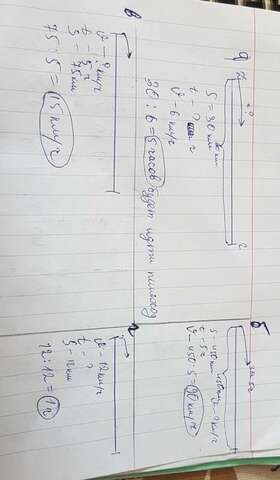 а
30 км
S = 30 км
t - ? ч
v - 6 км/ч
30 : 6 = 5 часов будет идти пешеход
б
за 5ч
S - 450 км
t - 5ч
v - ? км/ч
450 : 5 = 90 км/ч
в
v - ? км/ч
t - 5 ч
S - 75 км
75 : 5 = 15 км/ч
г
v - 12 км/ч
t - ?
S - 12 км
12 : 12 = 1ч